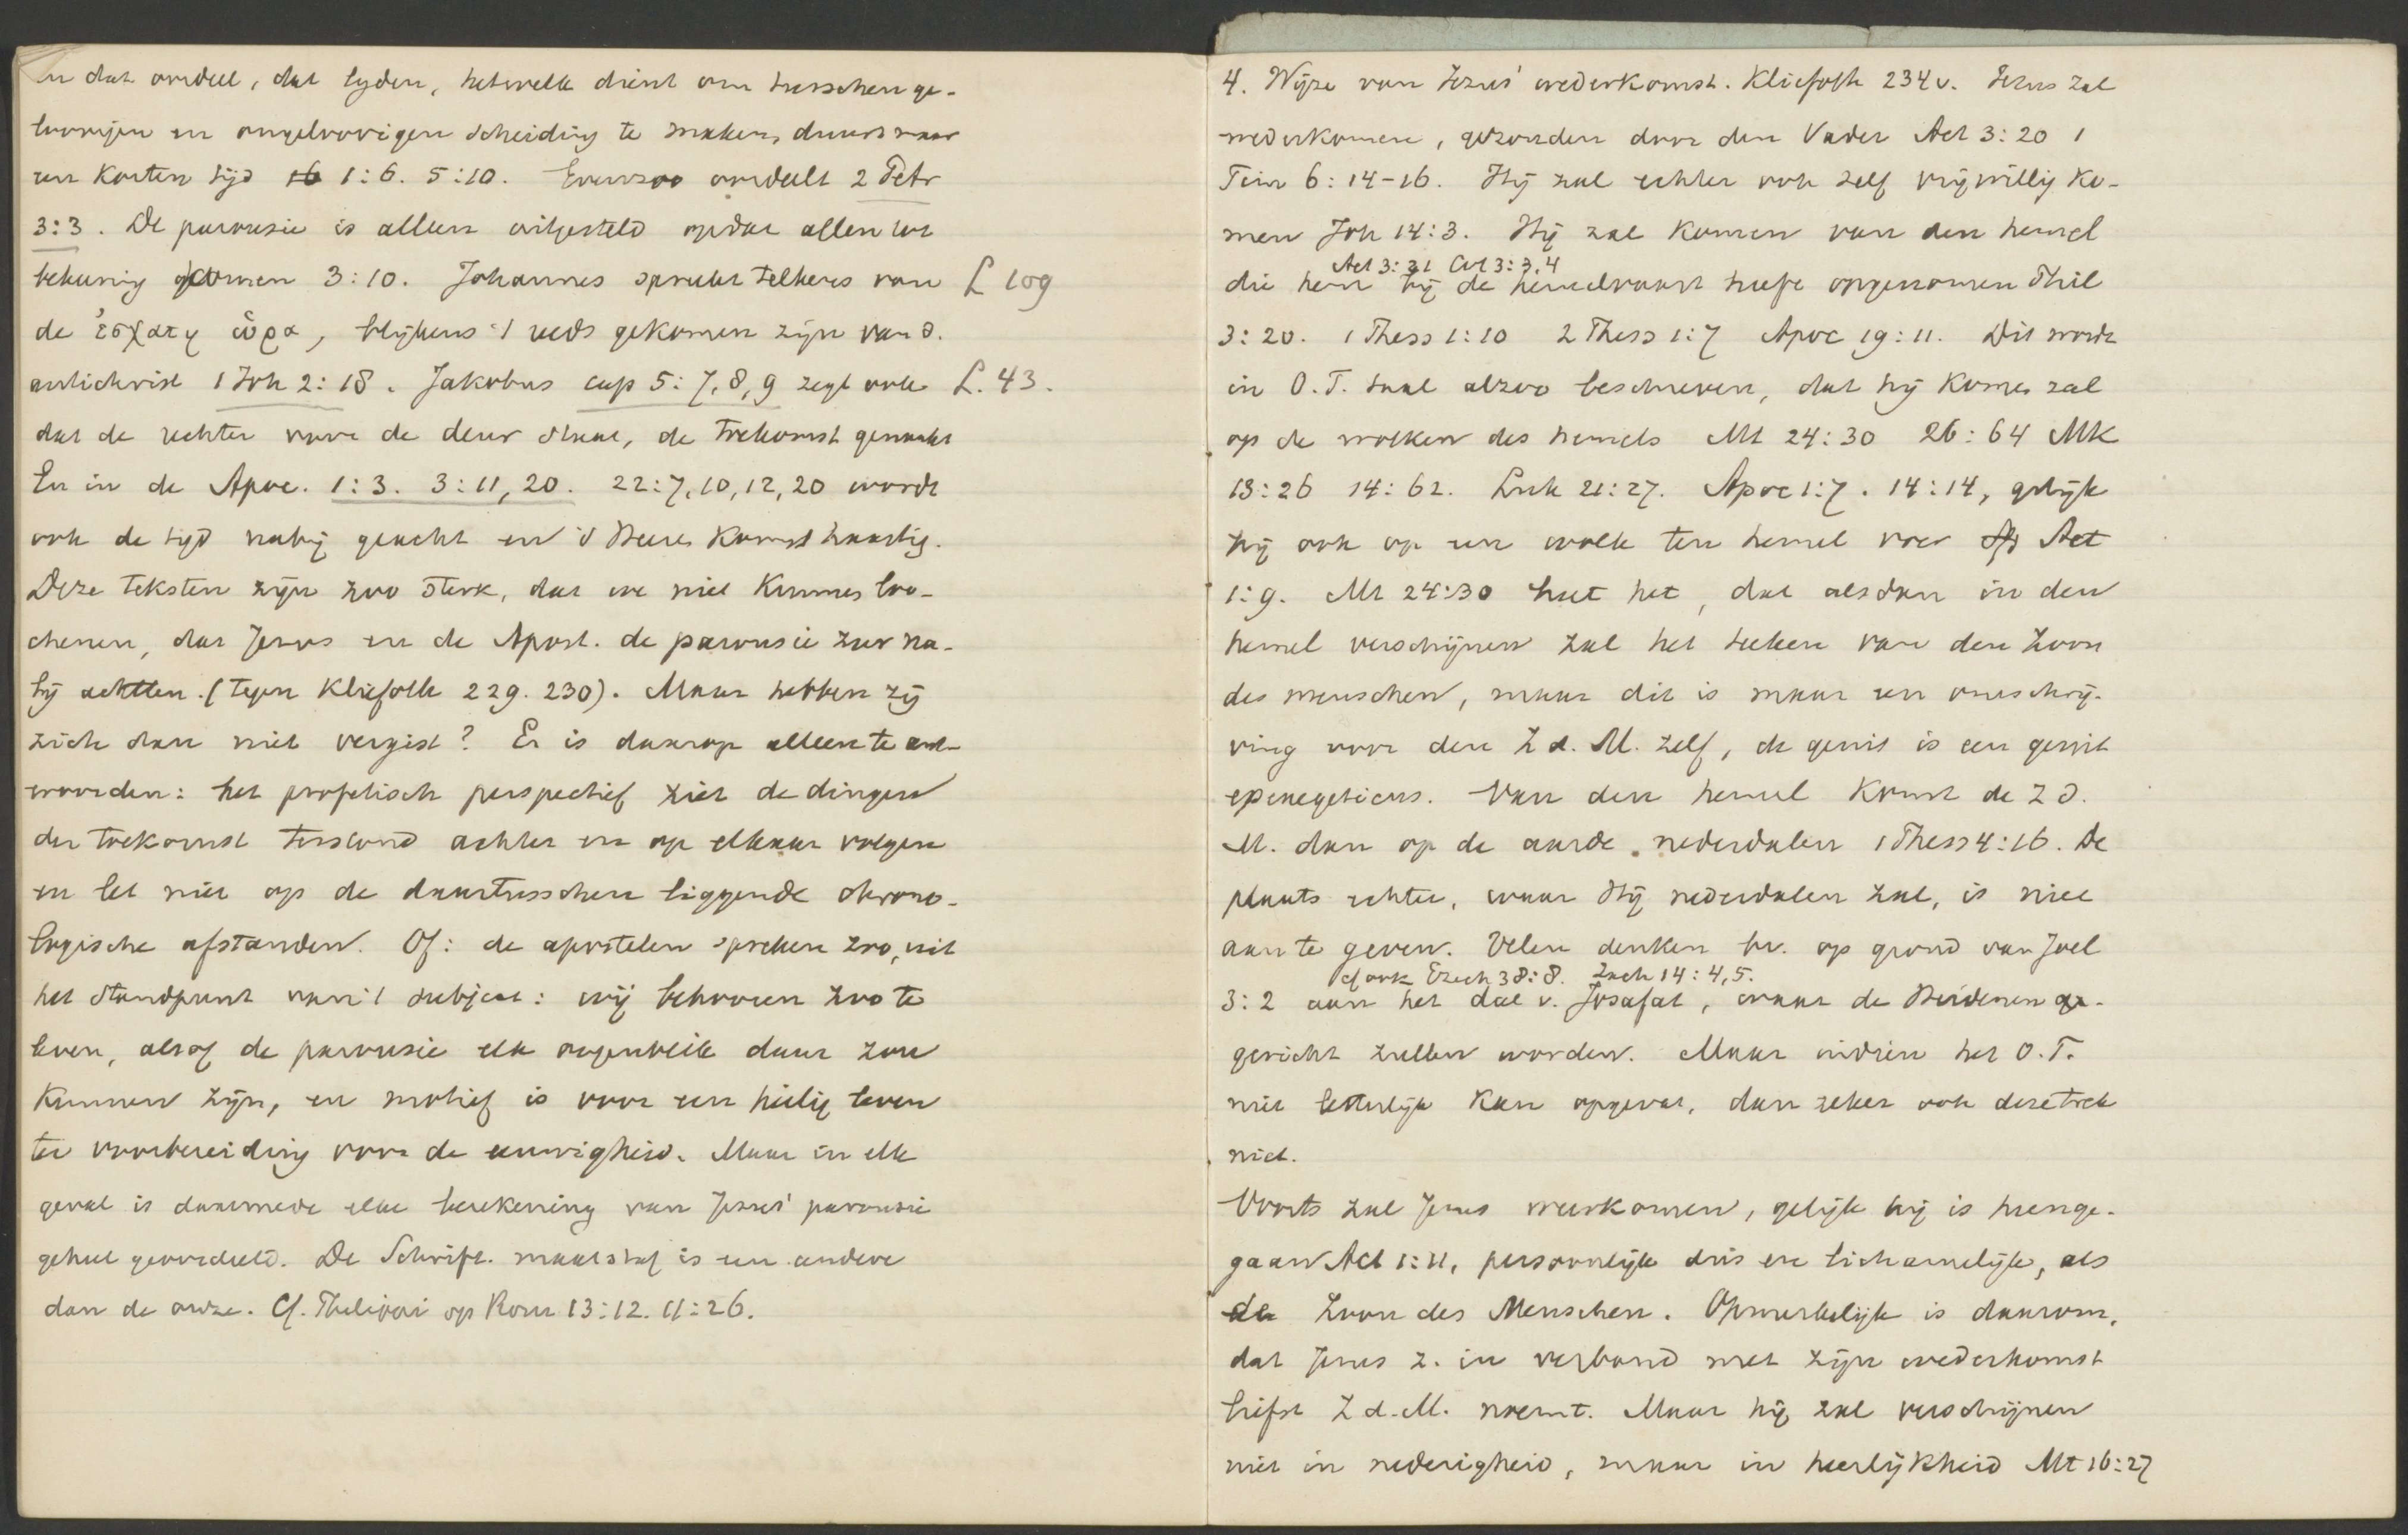 en dat oordeel, dat lyden, hetwelk dient om tusschen ge-
loovigen en ongeloovigen scheiding te maken, duurt maar
een korten tijd 1:6. 5:10. Evenzoo oordeelt 2 Petr
3:3. De parousie is alleen uitgesteld opdat allen tot
bekeering komen 3:10. Johannes spreekt telkens van L 109
de ἐσχατη ὡρα, blijkens 't reeds gekomen zijn van d.
antichrist 1 Joh 2:18. Jakobus cap 5:7,8,9 zegt ook L. 43.
dat de rechter voor de deur staat, de toekomst genaakt
En in de Apoc. 1:3. 3:11, 20. 22:7,10,12,20 wordt
ook de tijd nabij geacht en 's Heeren komst haastig.
Deze teksten zijn zoo sterk, dat we niet kunnen loo-
chenen, dat Jezus en de Apost. de parousie zeer na-
bij achtten. (tegen Kliefoth 229. 230). Maar hebben zij
zich dan niet vergist? Er is daarop alleen te ant-
woorden: het profetisch perspectief ziet de dingen
der toekomst terstond achter en op elkaar volgen
en let niet op de daartusschen liggende chrono-
logische afstanden. Of: de apostelen spreken zoo, uit
het standpunt van 't subject: wij behooren zoo te
leven, alsof de parousie elk oogenblik daar zou
kunnen zijn, en motief is voor een heilig leven
ter voorbereiding voor de eeuwigheid. Maar in elk
geval is daarmede elke berekening van Jezus' parousie
geheel geoordeeld. De Schrift. maatstaf is een andere
dan de onze. Cf. Philippi op Rom 13:12. 11:26.
4. Wijze van Jezus' wederkomst. Kliefoth 234 v. Jezus zal
wederkomen, gezonden door den Vader Act 3:20 1
Tim 6:14-16. Hij zal echter ook zelf vrijwillig ko-
men Joh 14:3. Hij zal komen van den hemel
Act 3:21 Col 3:3,4
die hem bij de hemelvaart heeft opgenomen Phil
3:20. 1 Thess 1:10 2 Thess 1:7 Apoc 19:11. Dit wordt
in O.T. taal alzoo beschreven, dat hij komen zal
op de wolken des hemels Mt 24:30 26:64 Mk
13:26 14:62. Luk 21:27. Apoc 1:7. 14:14, gelijk
hij ook op een wolk ten hemel voer Act
1:9. Mt 24:30 heet het, dat alsdan in den
hemel verschijnen zal het teeken van den Zoon
des menschen, maar dit is maar een omschrij-
ving voor den Z d. M. zelf, de genit is een genit
epexegeticus. Van den hemel komt de Z d.
M. dan op de aarde nederdalen 1 Thess 4:16. De
plaats echter, waar Hij nederdalen zal, is niet
aan te geven. Velen denken bv. op grond van Joel
cf ook Ezech 38:8. Zach 14:4,5.
3:2 aan het dal v. Josafat, waar de Heidenen ge-
gericht zullen worden. Maar indien het O.T.
niet letterlijk kan opgevat, dan zeker ook deze trek
niet.
Voorts zal Jezus weerkomen, gelijk hij is heenge-
gaan Act 1:11, persoonlijk dus en lichamelijk, als
de Zoon des Menschen. Opmerkelijk is daarom,
dat Jezus z. in verband met zijn wederkomst
liefst Z d. M. noemt. Maar hij zal verschijnen
niet in nederigheid, maar in heerlijkheid Mt 16:27